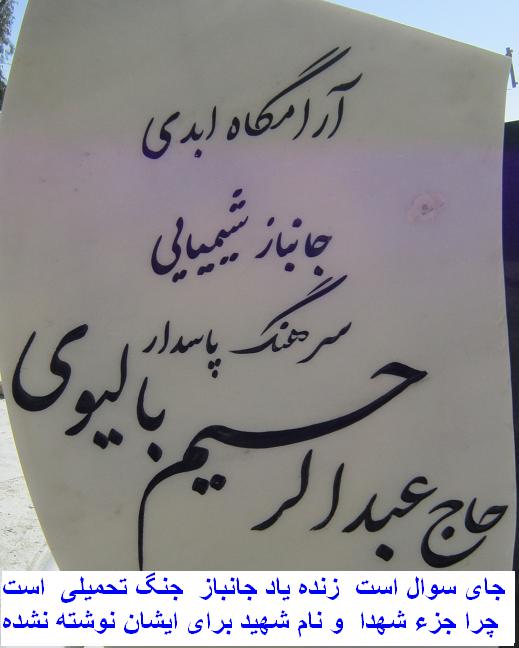 آرامگاه ابدی
جانباز شیمیایی
سرهنگ پاسدار
حاج عبدالرحیم بالیوی
جای سوال است زنده یاد جانباز جنگ تحمیلی است
چرا جزء شهدا و نام شهید برای ایشان نوشته نشده